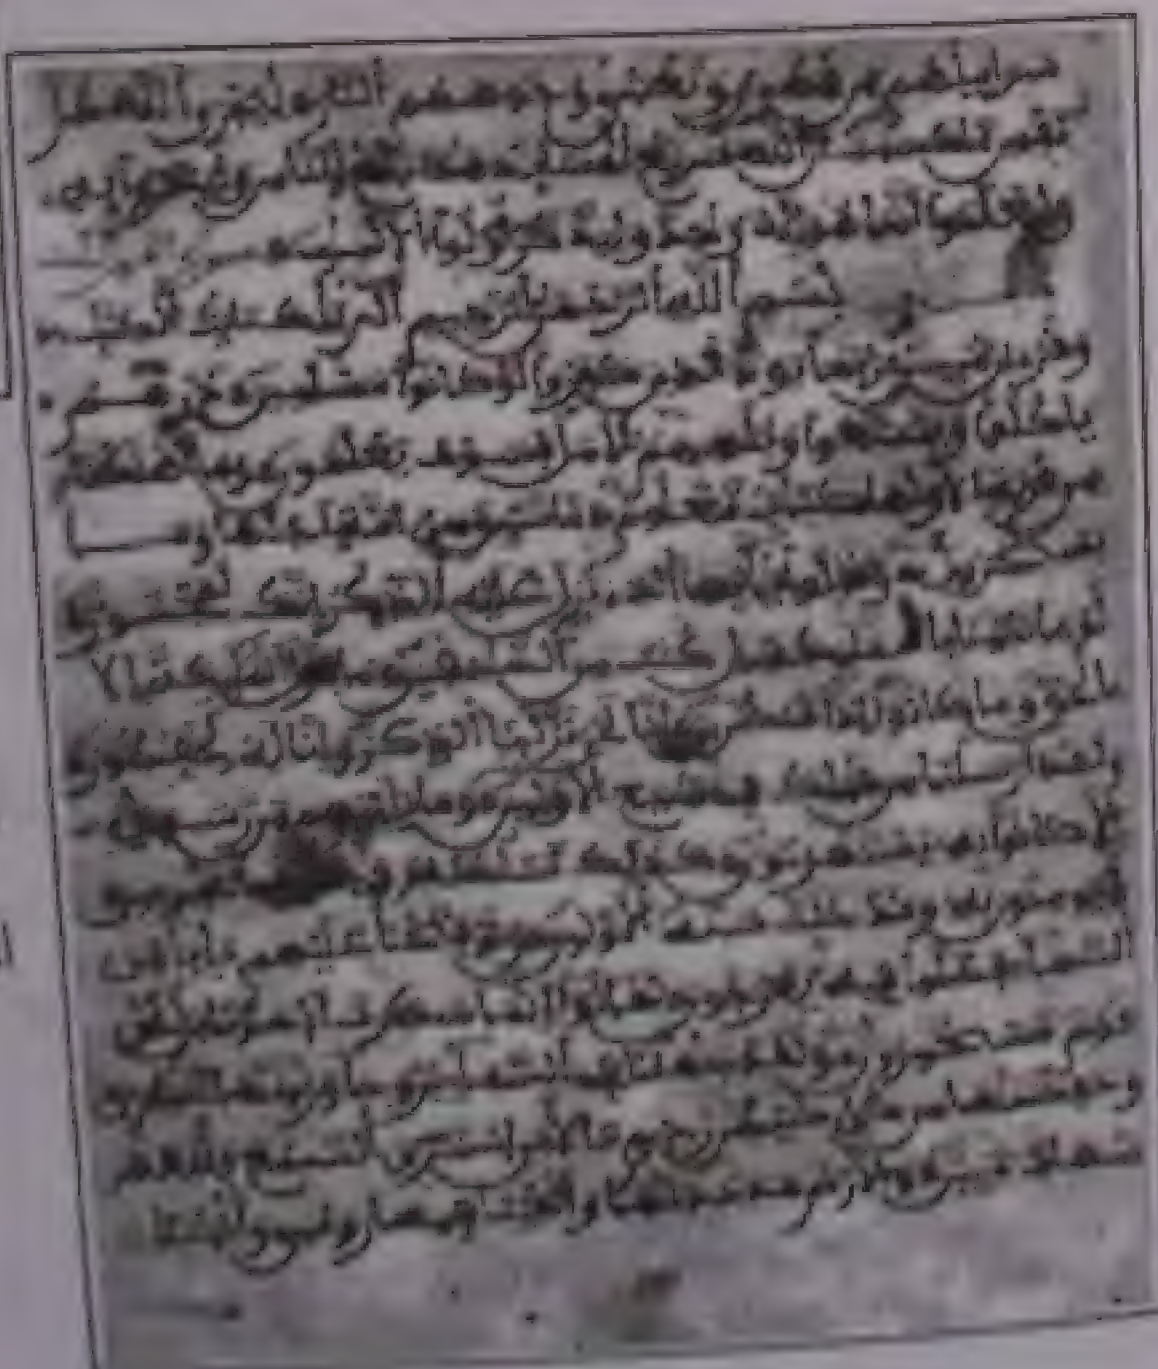 سرابيلهم من قطران وتغشى وجوههم النار ليجزي الله كل
نفس ما كسبت ان الله سريع الحساب هذا بلغ للناس ولينذروا به
وليعلموا انما هو اله وحد وليذكر اولوا الالبب
بسم الله الرحمن الرحيم الر تلك ايت الكتب
وقرءان مبين ربما يود الذين كفروا لو كانوا مسلمين ذرهم
ياكلوا ويتمتعوا ويلههم الامل فسوف يعلمون وما اهلكنا
من قرية الا ولها كتاب معلوم ما تسبق من امة اجلها وما
يستخرون وقالوا يايها الذي نزل عليه الذكر انك لمجنون
لو ما تاتينا بالمليكة ان كنت من الصدقين ما ننزل المليكة الا
بالحق وما كانوا اذا منظرين انا نحن نزلنا الذكر وانا له لحفظون
ولقد ارسلنا من قبلك في شيع الاولين وما ياتيهم من رسول
الا كانوا به يستهزءون كذلك نسلكه في قلوب المجرمين
لا يومنون به وقد خلت سنة الاولين ولو فتحنا عليهم بابا من
السماء فظلوا فيه يعرجون لقالوا انما سكرت ابصرنا بل نحن
قوم مسحورون ولقد جعلنا في السماء بروجا وزينها للنظرين
وحفظنها من كل شيطن رجيم الا من استرق السمع فاتبعه
شهاب مبين والارض مددنها والقينا فيها روسي وانبتنا